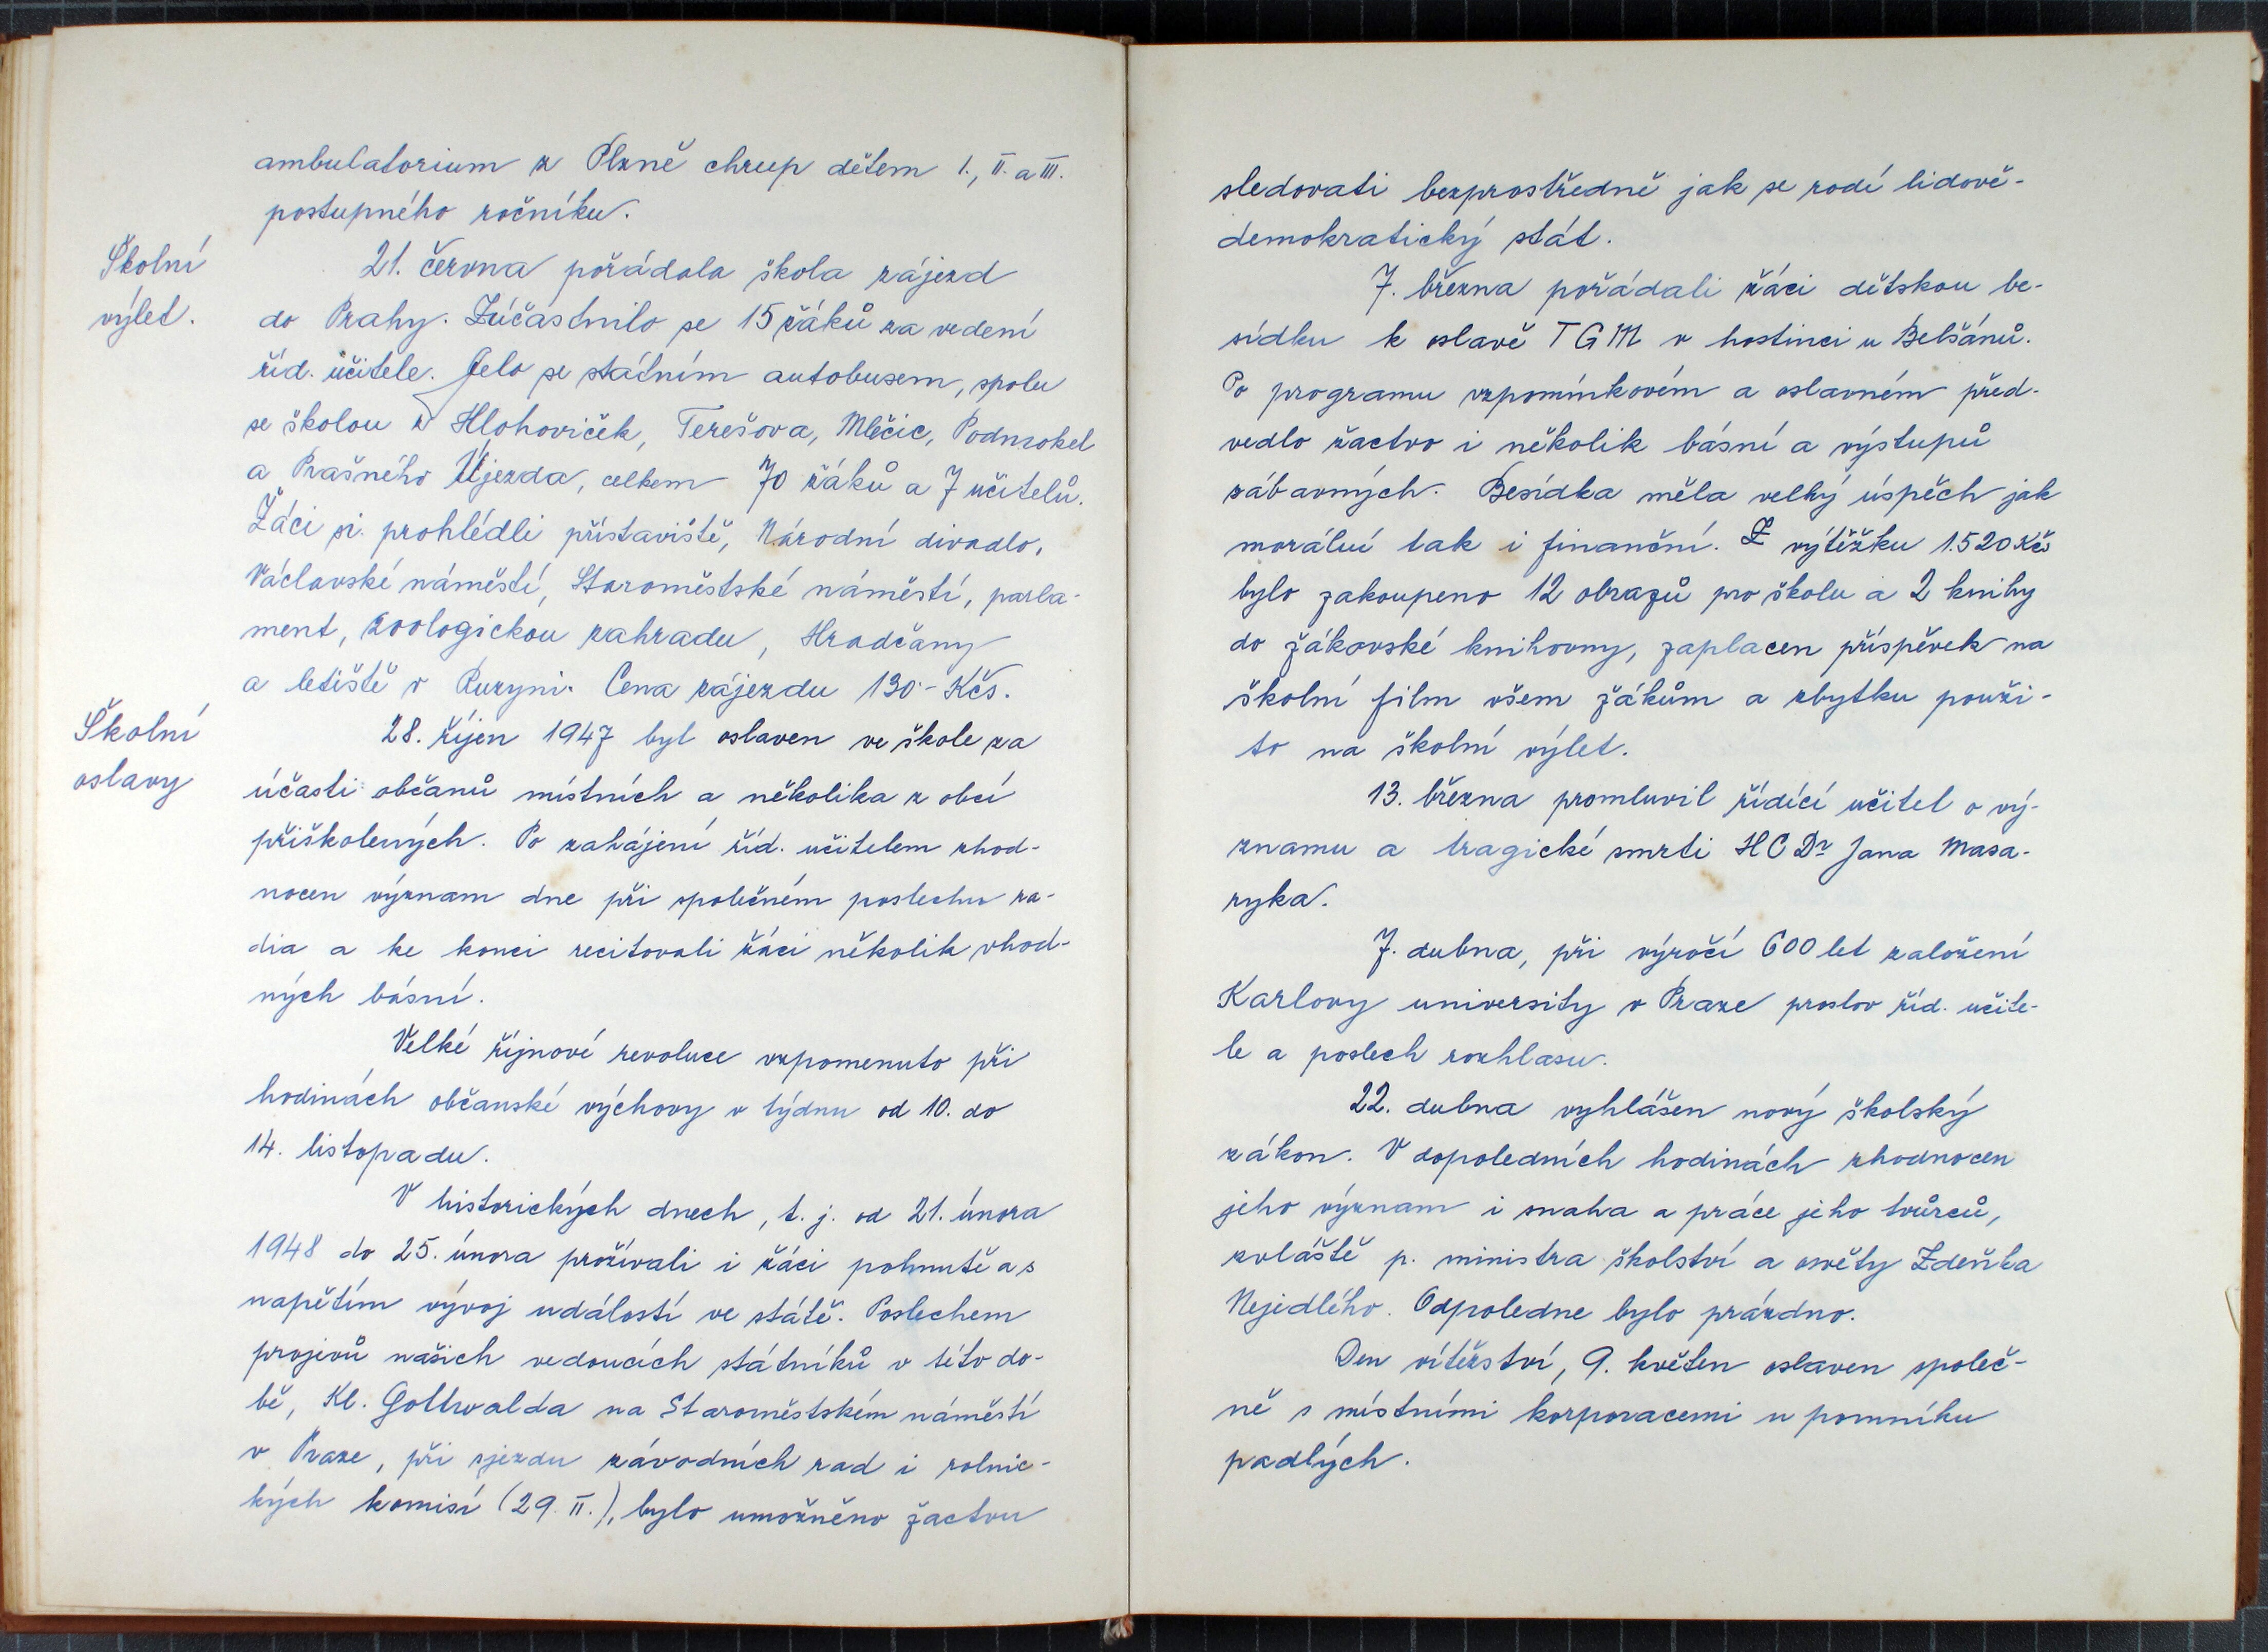 ambulatorium z Plzně chrup dětem 1., II. a III.
postupného ročníku.
Školní
výlet.
21. června pořádala škola zájezd
do Prahy. Zúčastnilo se 15 žáků za vedení
říd. učitele. Jelo se státním autobusem, spolu
se školou z Hlohoviček, Terešova, Mlečic, Podmokel
a Prašného Újezda, celkem 70 žáků a 7 učitelů.
Žáci si prohlédli přístaviště, Národní divadlo,
Václavské náměstí, Staroměstské náměstí, parla-
ment, zoologickou zahradu, Hradčany
a letiště v Ruzyni. Cena zájezdu 130.- Kčs.
Školní
oslavy
28. říjen 1947 byl oslaven ve škole za
účasti občanů místních a několika z obcí
přiškolených. Po zahájení říd. učitelem zhod-
nocen význam dne při společném poslechu ra-
dia a ke konci recitovali žáci několik vhod-
ných básní.
Velké říjnové revoluce vzpomenuto při
hodinách občanské výchovy v týdnu od 10. do
14. listopadu.
V historických dnech, t. j. od 21. února
1948 do 25. února prožívali i žáci pohnutě a s
napětím vývoj událostí ve státě. Poslechem
projevů našich vedoucích státníků v této do-
bě, Kl. Gottwalda na Staroměstském náměstí
v Praze, při sjezdu závodních rad i rolnic-
kých komisí (29. II.), bylo umožněno žactvu
sledovati bezprostředně jak se rodí lidově-
demokratický stát.
7. března pořádali žáci dětskou be-
sídku k oslavě TGM v hostinci u Belšánů.
Po programu vzpomínkovém a oslavném před-
vedlo žactvo i několik básní a výstupů
zábavných. Besídka měla velký úspěch jak
morální tak i finanční. Z výtěžku 1.520 Kčs
bylo zakoupeno 12 obrazů pro školu a 2 knihy
do žákovské knihovny, zaplacen příspěvek na
školní film všem žákům a zbytku použi-
to na školní výlet.
13. března promluvil řídící učitel o vý-
znamu a tragické smrti HC Dr Jana Masa-
ryka.
7. dubna, při výročí 600 let založení
Karlovy university v Praze proslov říd. učite-
le a poslech rozhlasu.
22. dubna vyhlášen nový školský
zákon. V dopoledních hodinách zhodnocen
jeho význam i snaha a práce jeho tvůrců,
zvláště p. ministra školství a osvěty Zdeňka
Nejedlého. Odpoledne bylo prázdno.
Den vítězství, 9. květen oslaven společ-
ně s místními korporacemi u pomníku
padlých.